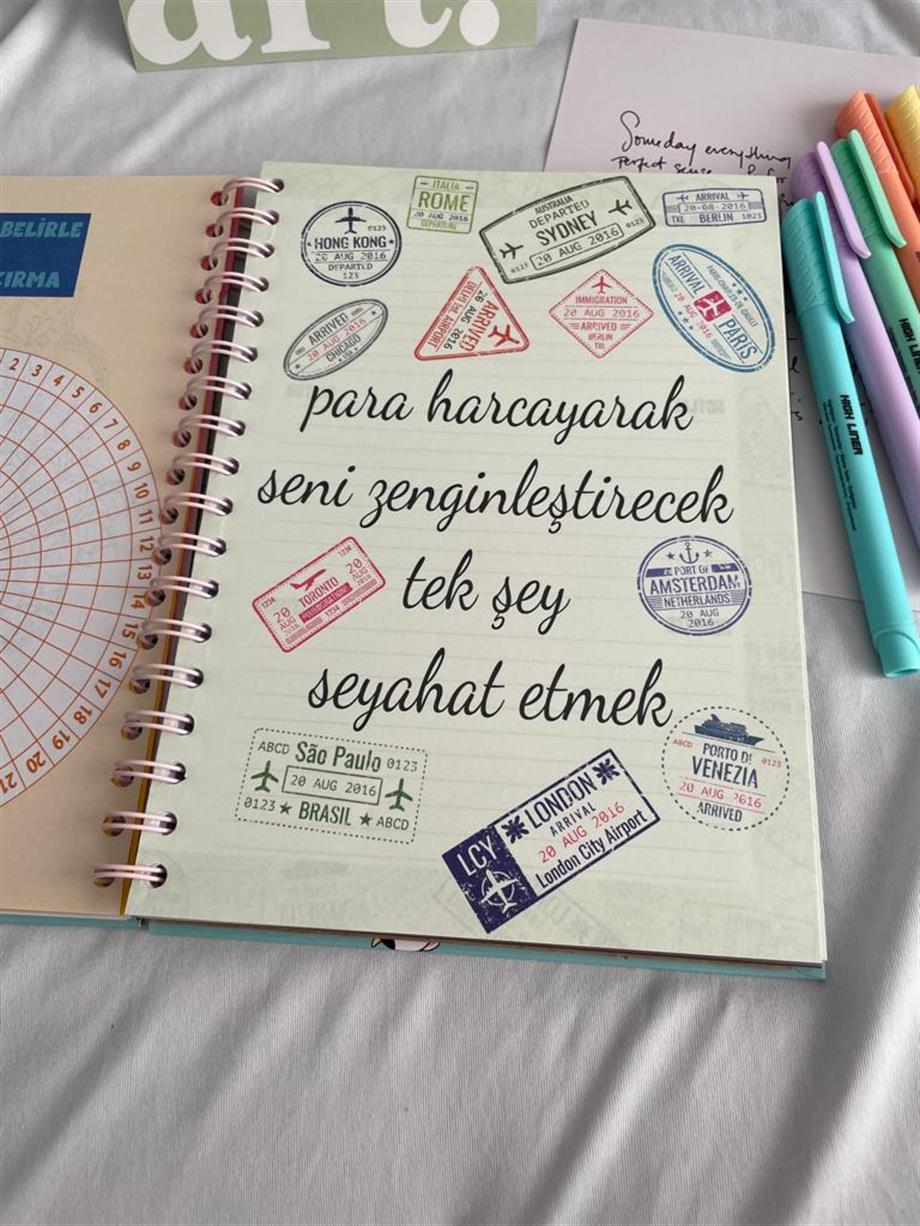 art.
Someday everything
perfect sense
BELİRLE
2 3 4 5 6 7 8 9 10 11 12 13 14 15 16 17 18 19 20 21
HONG KONG
0123
20 AUG 2016
DEPARTED
123
ITALIA
ROME
20 AUG 2016
DEPARTURE
AUSTRALIA
DEPARTED
SYDNEY
20 AUG 2016
0123
0123
ARRIVAL
20-08-2016
TXL BERLIN 0123
ARRIVED
20 AUG 2016
CHICAGO
USA
DELHI Int. AIRPORT
ARRIVED
20 AUG 2016
IMMIGRATION
20 AUG 2016
ARRIVED
BERLIN
TXL
PARIS-CHARLES DE GAULLE
ARRIVAL
20 AUG 2016
PARIS
para harcayarak
seni zenginleştirecek
tek şey
seyahat etmek
1234
1234
20
AUG
2016
TORONTO
IMMIGRATION
1234
20
AUG
2016
PORT OF
AMSTERDAM
NETHERLANDS
20 AUG
2016
ABCD São Paulo 0123
20 AUG 2016
0123 BRASIL ABCD
LCY
LONDON
ARRIVAL
20 AUG 2016
London City Airport
ABCD PORTO DI 0123
VENEZIA
20 AUG 2016
ARRIVED
HIGH LINER
HIGH LINER